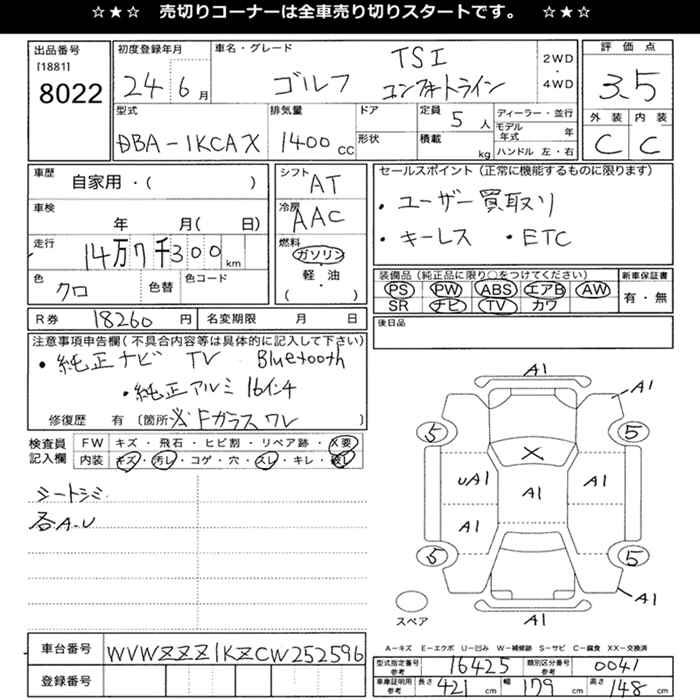 ☆★☆ 売切りコーナーは全車売り切りスタートです。 ☆★☆
出品番号
[1881]
8022
初度登録年月
24 6月
車名・グレード
ゴルフ
TSI
コンフォートライン
2WD
・
4WD
評価点
3.5
型式
DBA-1KCAX
排気量
1400cc
ドア
形状
定員 5人
積載 kg
ディーラー・並行
モデル年式 年
ハンドル 左・右
外装 内装
C C
車歴
自家用・( )
車検
年 月( 日)
走行
14万7千300km
色
クロ
色替
色コード
シフト
AT
冷房
AAC
燃料
ガソリン
・
軽・油
( )
セールスポイント(正常に機能するものに限ります)
・ユーザー買取り
・キーレス ・ETC
装備品(純正品に限り○をつけてください)
PS PW ABS エアB AW
SR ナビ TV カワ
新車保証書
有・無
R券 18260円
名変期限 月 日
後日品
注意事項申告欄(不具合内容等は具体的に記入して下さい)
・純正ナビ TV Bluetooth
・純正アルミ 16インチ
修復歴 有〔箇所 ※Fガラスワレ 〕
検査員
記入欄
FW キズ・飛石・ヒビ割・リペア跡・X要
内装 キズ・汚レ・コゲ・穴・スレ・キレ・破レ
シートシミ
各A-U
A1
A1
5 5
X
UA1 A1 A1
A1
5 5
A1
A1
スペア
A－キズ E－エクボ U－凹み W－補修跡 S－サビ C－腐食 XX－交換済
車台番号 WVWZZZ1KZCW252596
登録番号
型式指定番号
参考
16425
類別区分番号
参考
0041
車庫証明用
参考
長さ 421cm 幅 179cm 高さ 148cm